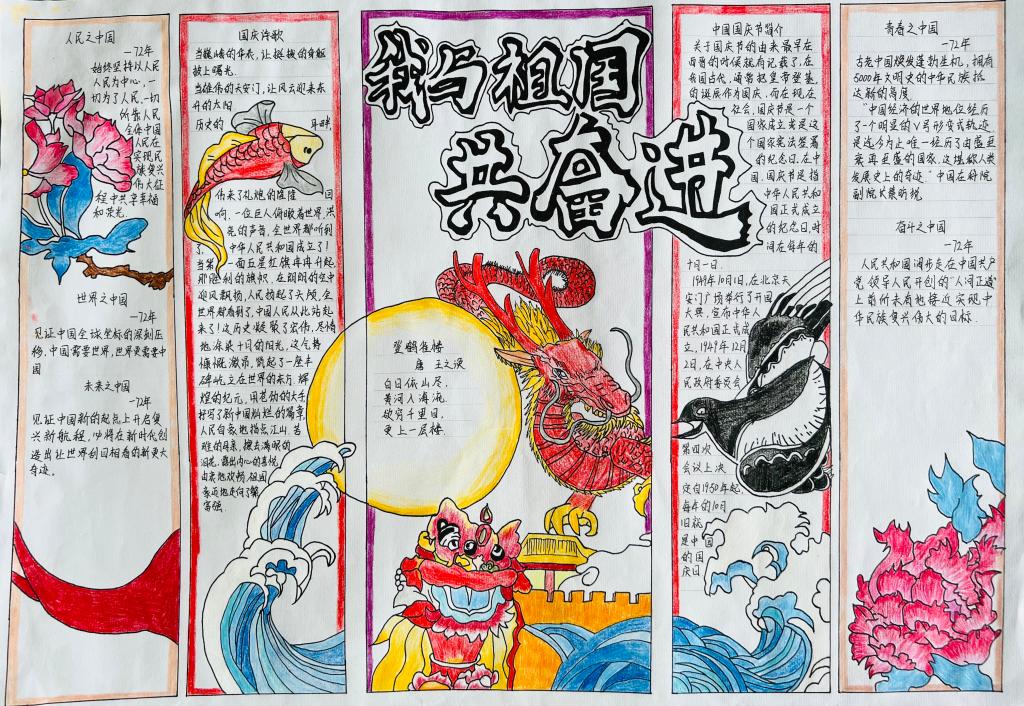 人民之中国
—72年
始终坚持以人民
人民为中心，一
切为了人民，一切
依靠人民
全体中国
人民在
实现民
族复兴
伟大征
程中共享幸福
和荣光.
世界之中国
—72年
见证中国全球坐标的深刻压
移，中国需要世界，世界更需要中
国
未来之中国
—72年
见证中国新的起点上开启复
兴新航程，必将在新时代创
造出让世界刮目相看的新更大
奇迹。
国庆诗歌
当巍峨的华表，让挺拔的身躯
披上曙光.
当雄伟的天安门，让风云迎来东
升的太阳
历史的 耳畔，
传来了礼炮的隆隆 回
响.一位巨人俯瞰着世界，洪
亮的声音，全世界都听到
了 中华人民共和国成立了！
当第一面五星红旗冉冉升起
那胜利的旗帜.在朗朗的空中
迎风飘扬，人民扬起了头颅，全
世界都看到了，中国人民从此站起
来了！这历史凝聚了宏伟，尽情
地涂染十月的阳光，这气势
慷慨激昂，筑起了一座丰
碑屹立在世界的东方，辉
煌的纪元，用苍劲的大手
抒写了新中国灿烂的篇章
人民自豪地指点江山.苦
难的母亲，擦去满眼的
泪花，露出内心的喜悦
由衷地欢畅.祖国
豪迈地走向了繁
富强.
我与祖国
共奋进
登鹳雀楼
唐 王之涣
白日依山尽，
黄河入海流.
欲穷千里目，
更上一层楼.
中国国庆节简介
关于国庆节的由来最早在
西晋的时候就有记载了，在
我国古代，通常把皇帝登基
的诞辰作为国庆.而在现在
社会，国庆节是一个
国家成立或是这
个国家宪法签署
的纪念日.在中
国，国庆节是指
中华人民共和
国正式成立
的纪念日，时
间在每年的
十月一日.
1949年10月1日，在北京天
安门广场举行了开国
大典，宣布中华人
民共和国正式成
立，1949年12月
2日，在中央人
民政府委员会
第四次
会议上决
定自1950年起，
每年的10月
1日就
是中国
的国
庆日
青春之中国
—72年
古老中国焕发蓬勃生机，拥有
5000年文明史的中华民族抵
达新的高度
“中国经济的世界地位经历
了个明显的V弓形变式轨迹
是迄今为止唯一经历了由盛至
衰再至盛的国家，这堪称人类
发展史上的奇迹.”中国社科院
副院长蔡昉说
奋斗之中国
—72年
人民共和国阔步走在中国共产
党领导人民开创的“人间正道”
上前所未有地接近实现中
华民族复兴伟大的目标.